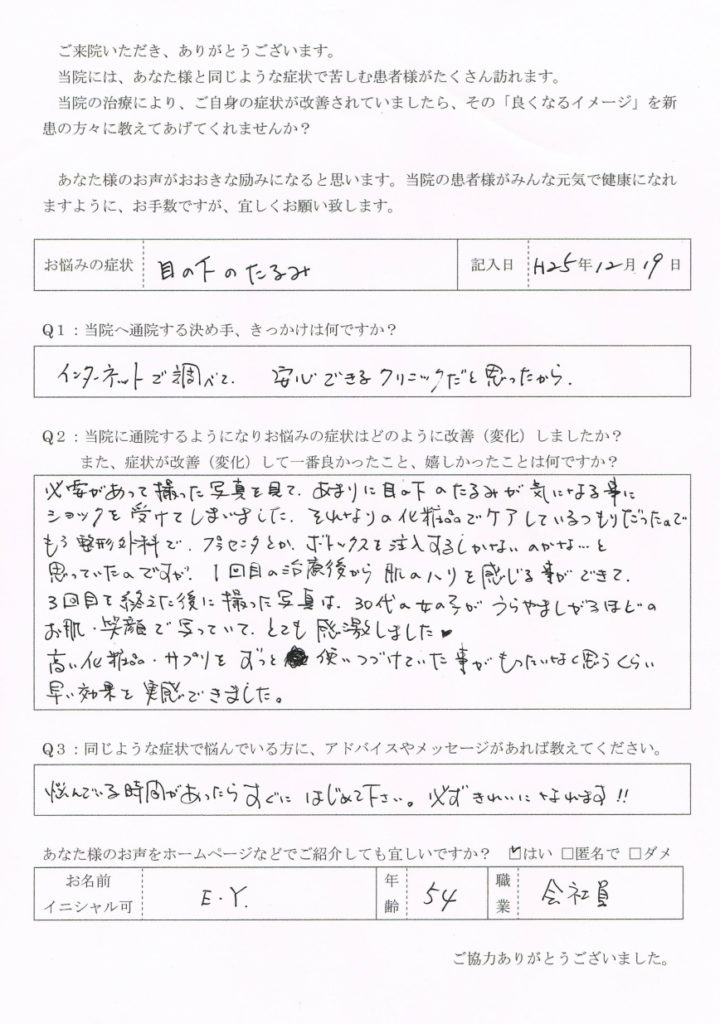 ご来院いただき、ありがとうございます。
当院には、あなた様と同じような症状で苦しむ患者様がたくさん訪れます。
当院の治療により、ご自身の症状が改善されていましたら、その「良くなるイメージ」を新
患の方々に教えてあげてくれませんか？
あなた様のお声がおおきな励みになると思います。当院の患者様がみんな元気で健康になれ
ますように、お手数ですが、宜しくお願い致します。
お悩みの症状 目の下のたるみ 記入日 H25年12月19日
Q1：当院へ通院する決め手、きっかけは何ですか？
インターネットで調べて、安心できるクリニックだと思ったから。
Q2：当院に通院するようになりお悩みの症状はどのように改善（変化）しましたか？
また、症状が改善（変化）して一番良かったこと、嬉しかったことは何ですか？
必要があって撮った写真を見て、あまりに目の下のたるみが気になる事に
ショックを受けてしまいました。それなりの化粧品でケアしているつもりだったので
もう整形外科で、プラセンタとか、ボトックスを注入するしかないのかな…と
思っていたのですが、1回目の治療後から肌のハリを感じる事ができて、
3回目を終えた後に撮った写真は、30代の女の子がうらやましがるほどの
お肌・笑顔で写っていて、とても感激しました♥
高い化粧品・サプリをずっと使いつづけていた事がもったいなく思うくらい
早い効果を実感できました。
Q3：同じような症状で悩んでいる方に、アドバイスやメッセージがあれば教えてください。
悩んでいる時間があったらすぐにはじめて下さい。必ずきれいになれます!!
あなた様のお声をホームページなどでご紹介しても宜しいですか？ ☑はい □匿名で □ダメ
お名前 イニシャル可 E.Y. 年齢 54 職業 会社員
ご協力ありがとうございました。